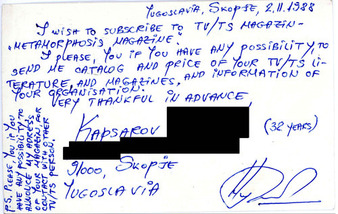 Yugoslavia, Skopje, 2.11.1988
I wish to subscribe to TV/TS magazin-
"METAMORPHOSIS MAGAZINE".
I please, you if you have any possibility, to
send me catalog and price of your TV/TS li-
terature, and magazines, and information of
your organisation.
Very thankful in advance,
Kapsarov
(32 years)
91000, Skopje
Yugoslavia
P.S. Please, you if you
have any possibility to
announce my adress,
of your magazin, for
contact with other
TV/TS person.